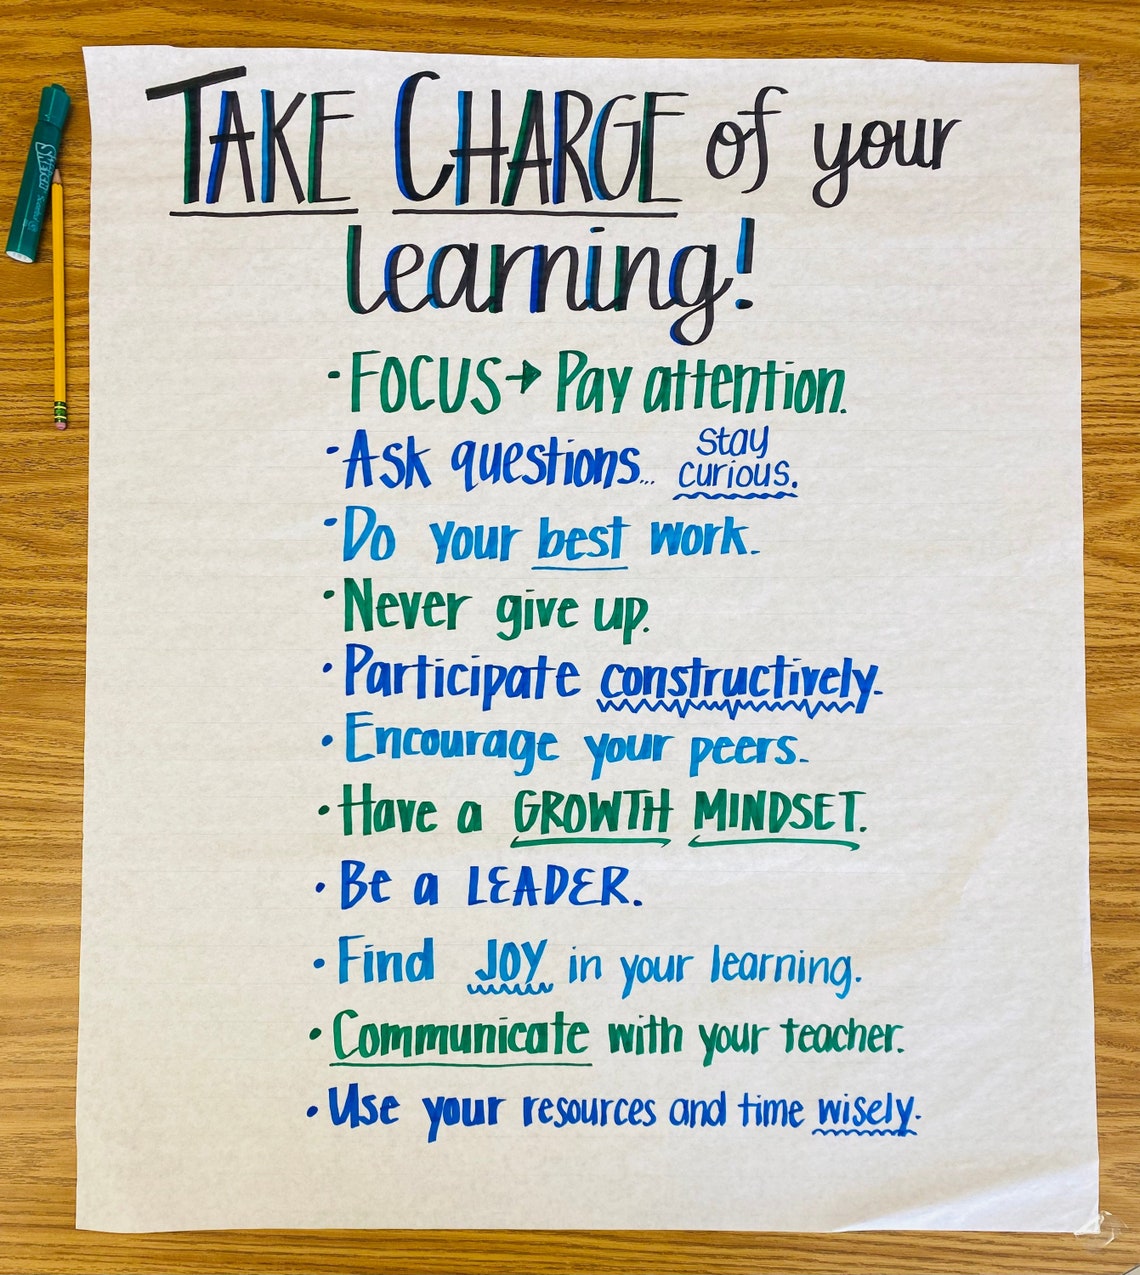 TAKE CHARGE of your
learning!
• FOCUS → Pay attention.
• Ask questions... stay curious.
• Do your best work.
• Never give up.
• Participate constructively.
• Encourage your peers.
• Have a GROWTH MINDSET.
• Be a LEADER.
• Find JOY in your learning.
• Communicate with your teacher.
• Use your resources and time wisely.